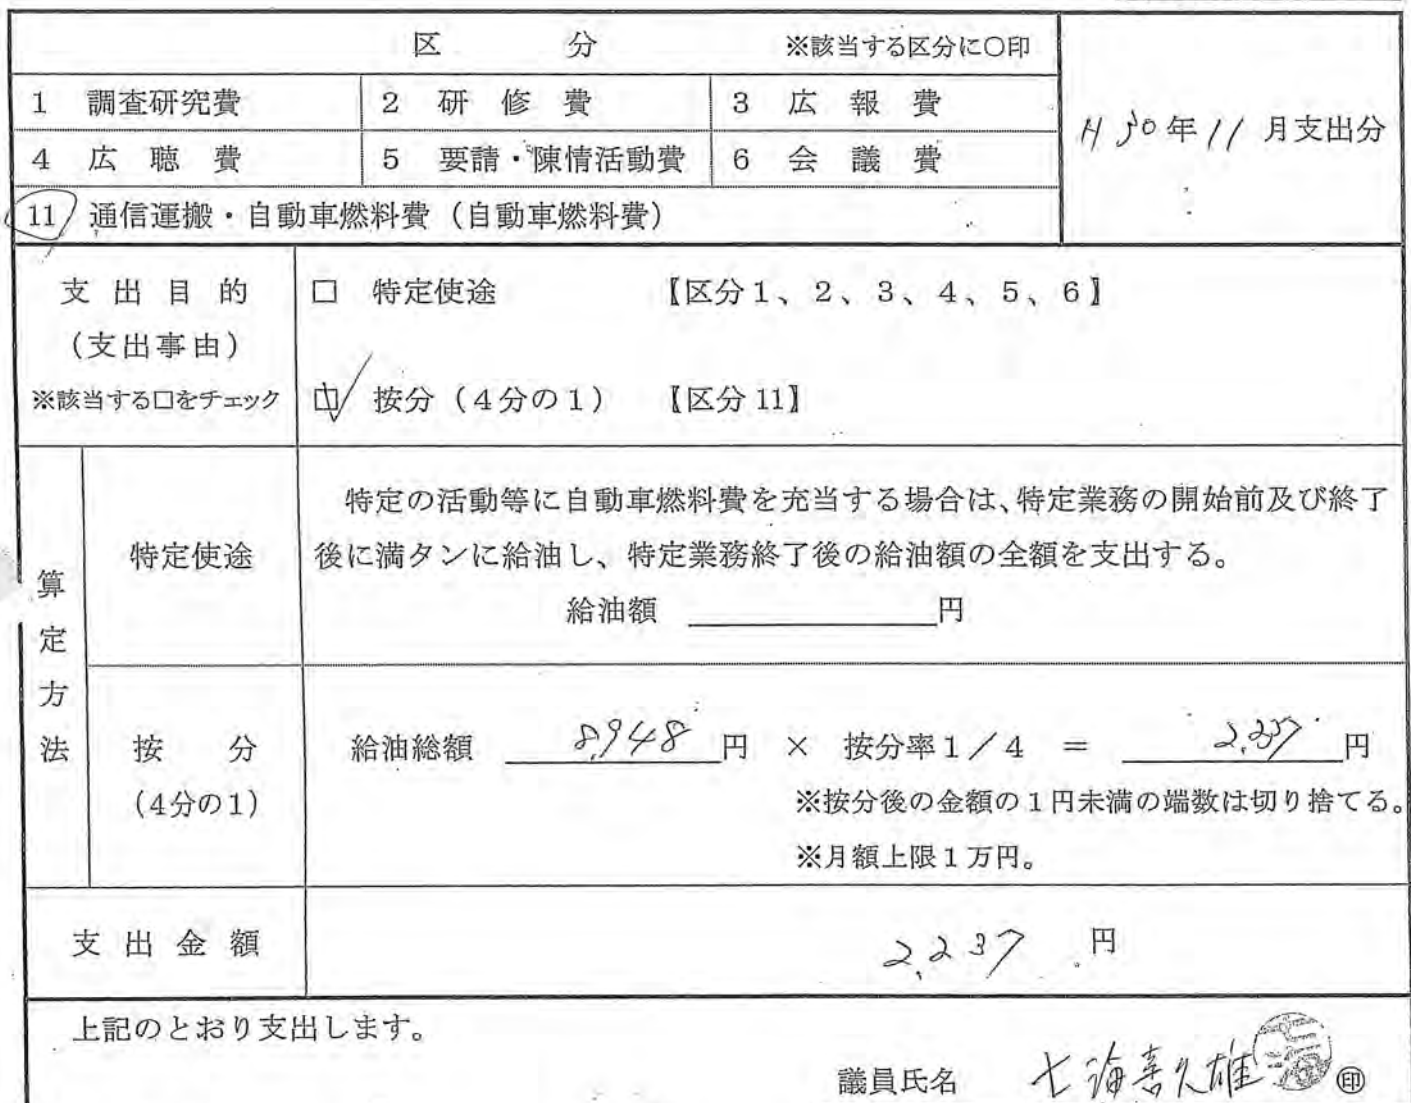 区 分 ※該当する区分に○印
1 調査研究費 2 研修費 3 広報費
H30年11月支出分
4 広聴費 5 要請・陳情活動費 6 会議費
11 通信運搬・自動車燃料費(自動車燃料費)
支出目的
(支出事由)
※該当する□をチェック
□ 特定使途 【区分1、2、3、4、5、6】
□ 按分(4分の1) 【区分11】
算定方法
特定使途
特定の活動等に自動車燃料費を充当する場合は、特定業務の開始前及び終了
後に満タンに給油し、特定業務終了後の給油額の全額を支出する。
給油額 円
按分
(4分の1)
給油総額 8,948 円 × 按分率1/4 = 2,237 円
※按分後の金額の1円未満の端数は切り捨てる。
※月額上限1万円。
支出金額 2,237 円
上記のとおり支出します。
議員氏名 七海喜久雄 ㊞